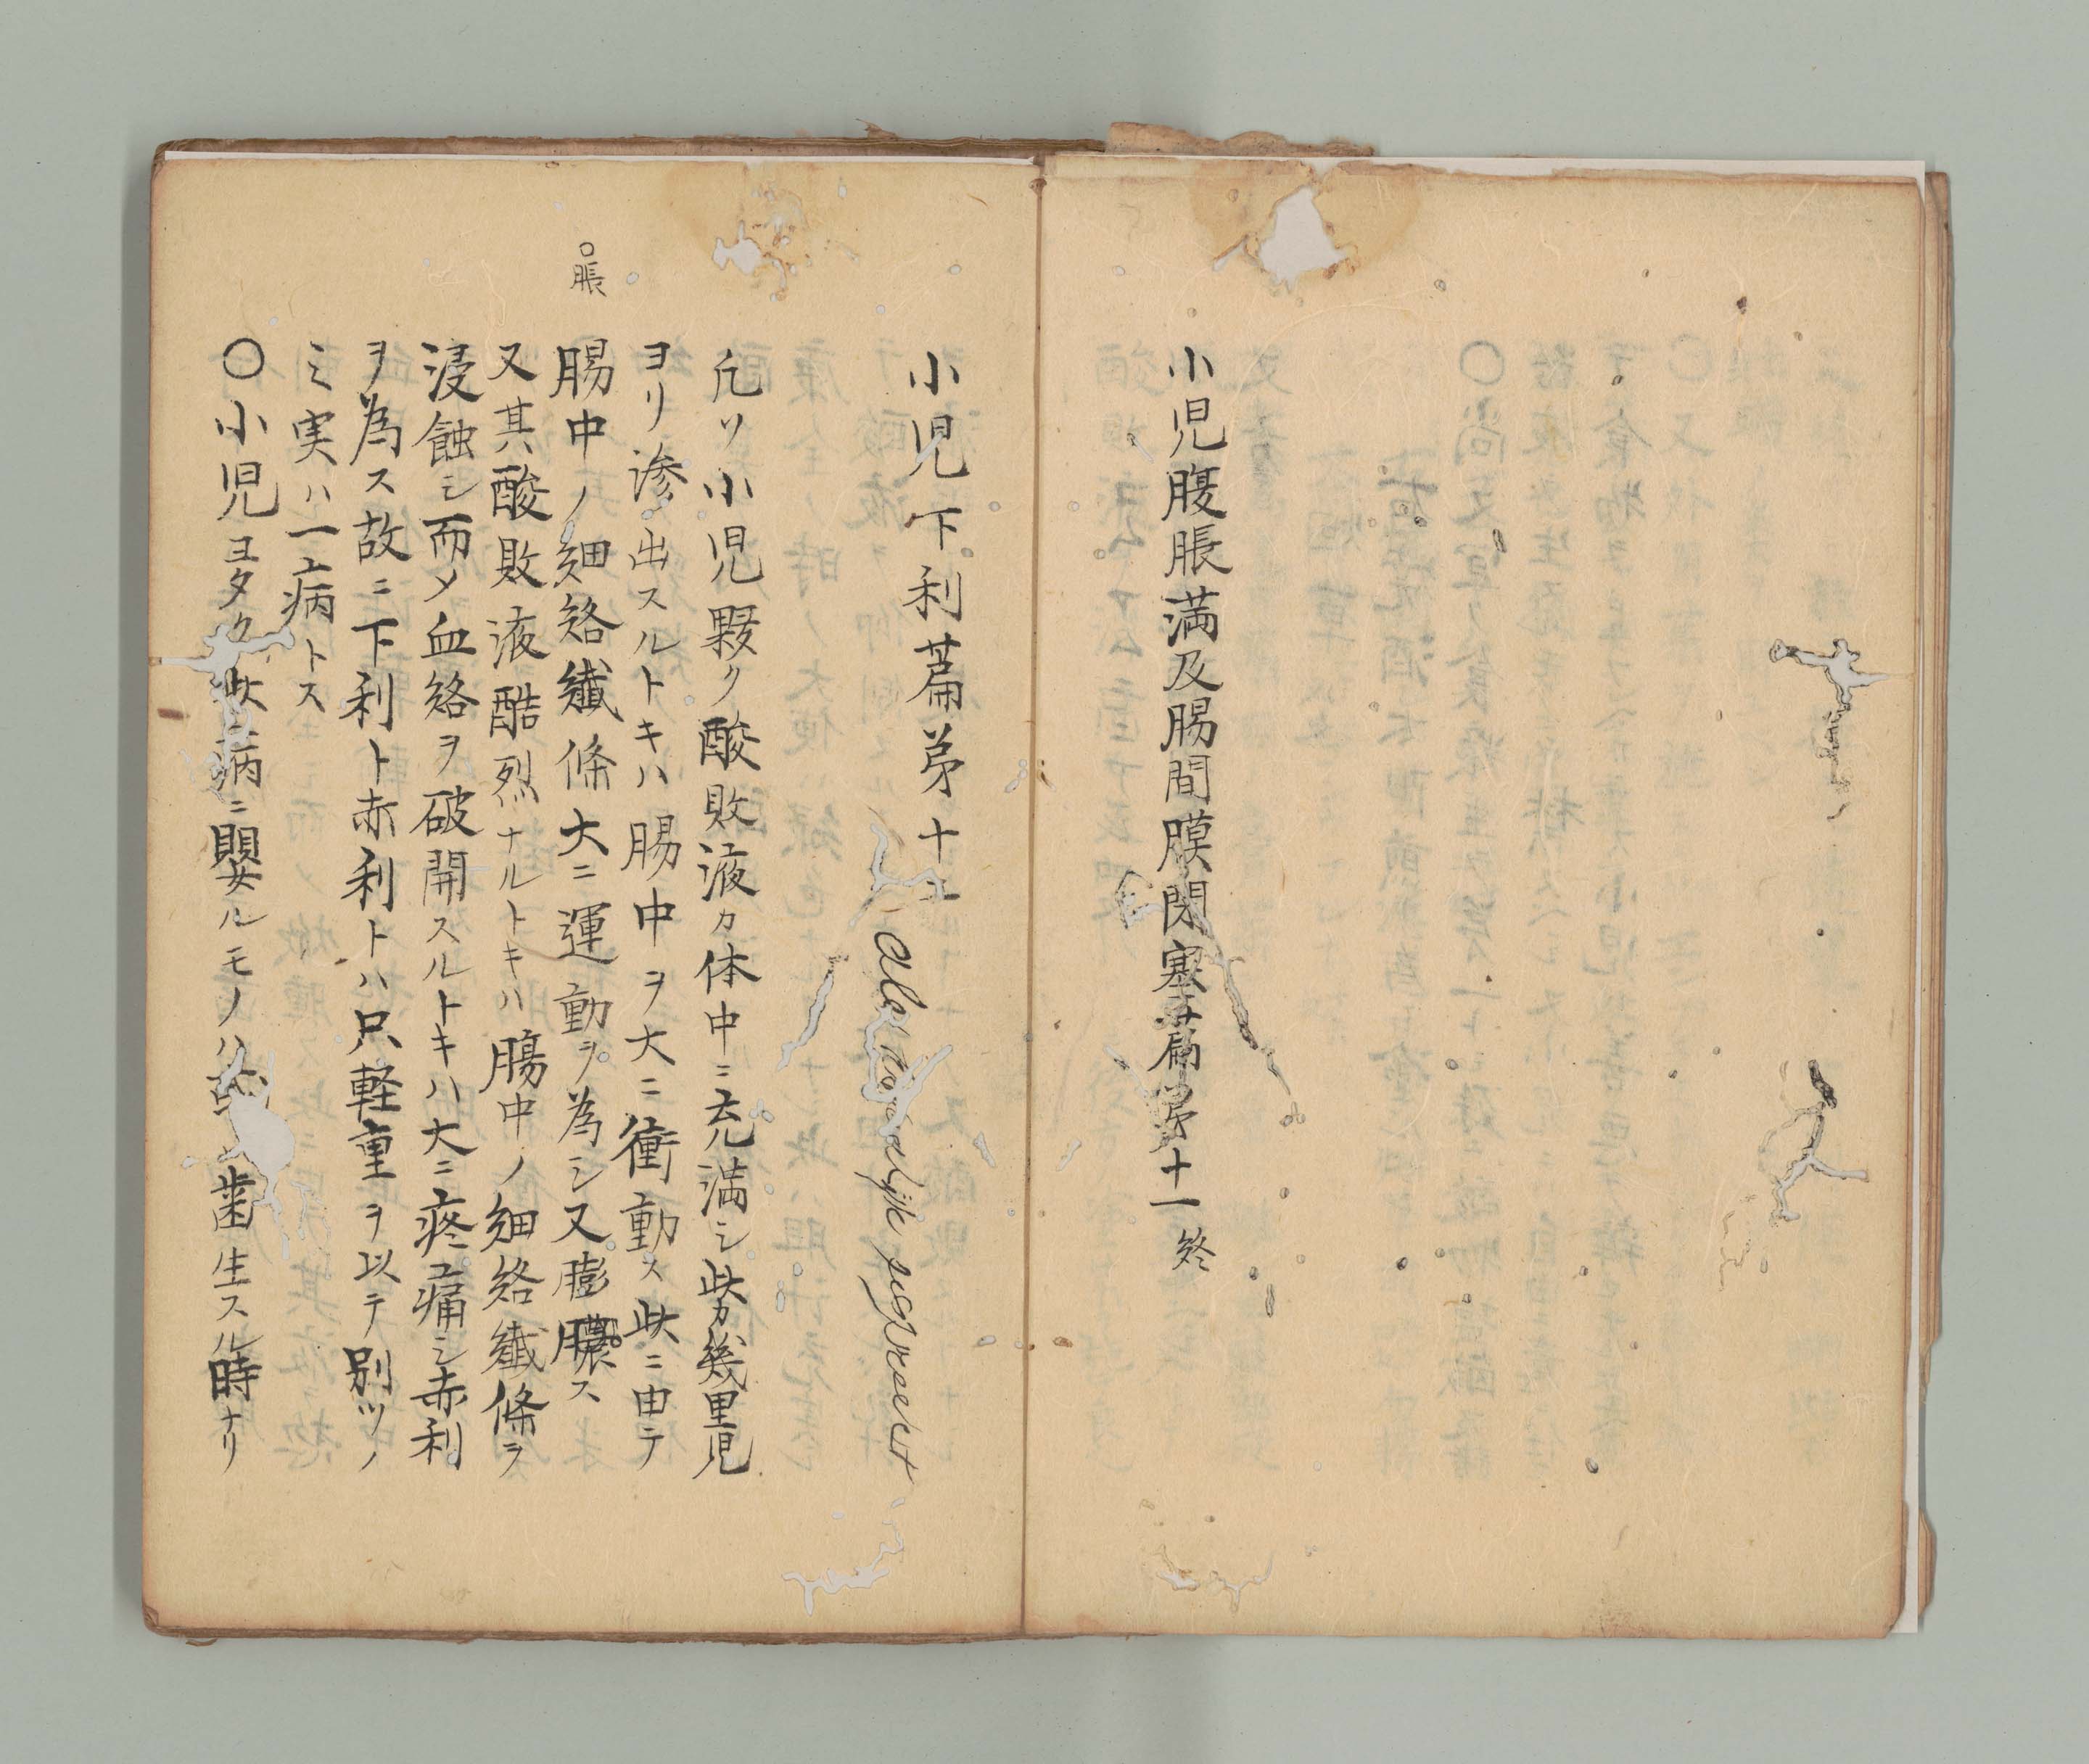 小児腹脹満及腸間膜閉塞篇第十一 終
小児下利篇第十二
凢ソ小児夥ク酸敗液カ体中ニ充満シ此カ幾里児
ヨリ滲出スルトキハ腸中ヲ大ニ衝動ス此ニ由テ
腸中ノ細絡纎條大ニ運動ヲ為シ又膨膿ス
○脹
又其酸敗液酷烈ナルトキハ腸中ノ細絡纎條ヲ
浸蝕シ而メ血絡ヲ破開スルトキハ大ニ疼痛シ赤利
ヲ為ス故ニ下利ト赤利トハ只軽重ヲ以テ別ツノ
ミ実ハ一病トス
〇小児ヨク此病ニ嬰ルモノハ歯生スル時ナリ